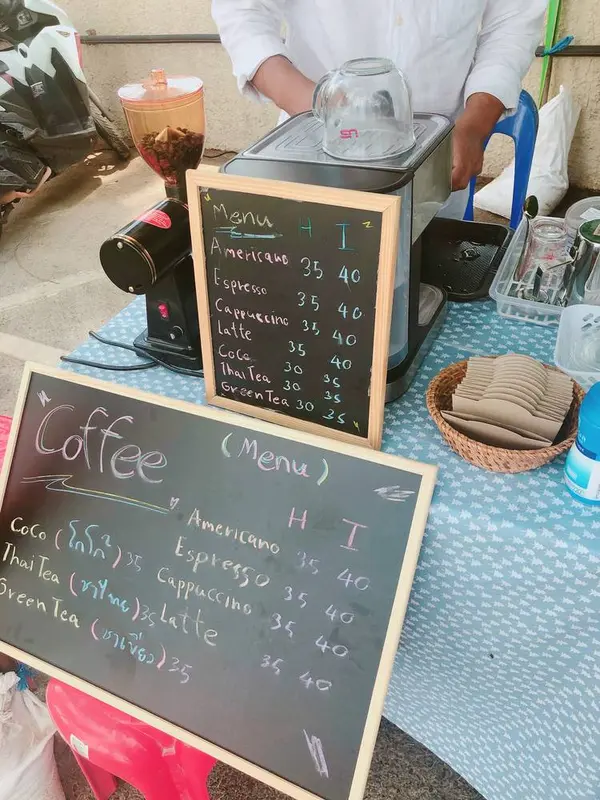 Menu H I
Americano 35 40
Espresso 35 40
Cappuccino 35 40
Latte 35 40
Coco 30 35
Thai Tea 30 35
Green Tea 30 35
Coffee (Menu)
H I
Americano 35 40
Espresso 35 40
Cappuccino 35 40
Latte 35 40
Coco (โกโก้) 35
Thai Tea (ชาไทย) 35
Green Tea (ชาเขียว) 35